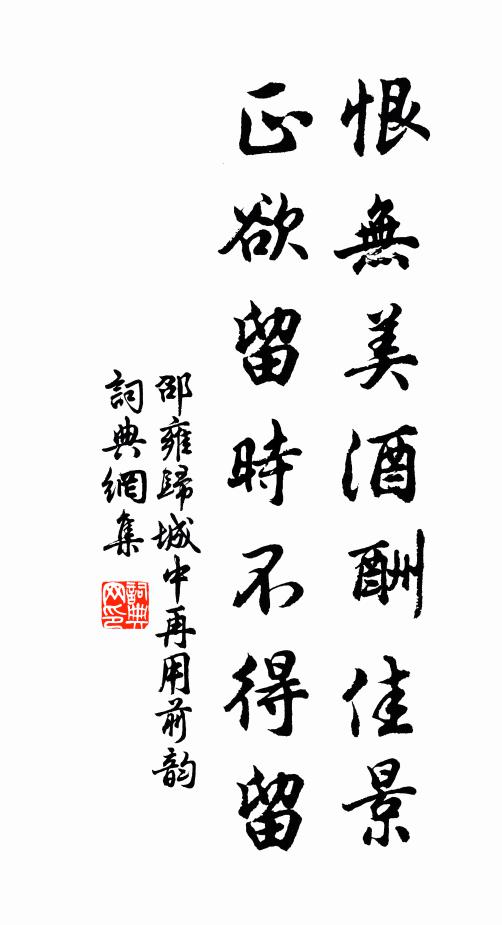 恨無美酒酬佳景
正欲留時不得留
邵雍歸城中再用前韵
詞典網集
詞典网印